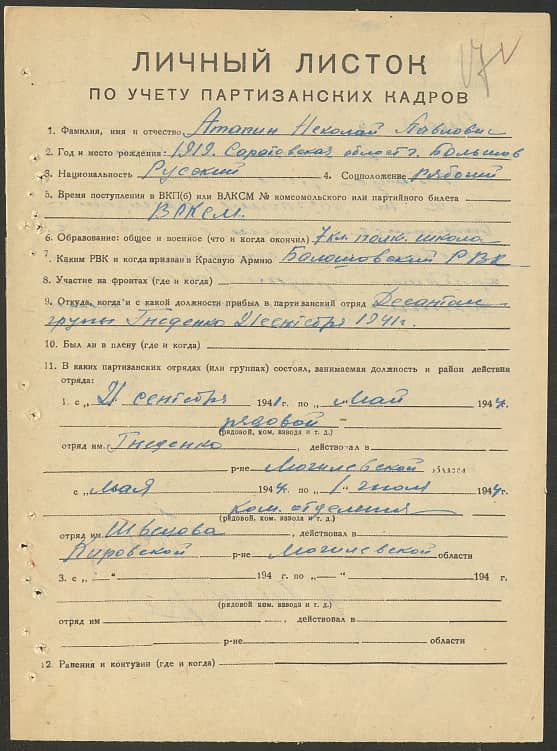 ЛИЧНЫЙ ЛИСТОК
ПО УЧЕТУ ПАРТИЗАНСКИХ КАДРОВ
1. Фамилия, имя и отчество Атапин Николай Павлович
2. Год и место рождения: 1919. Саротовская област г.
3. Национальность Русский 4. Соцположение рабочий
5. Время поступления в ВКП(б) или ВЛКСМ № комсомольского или партийного билета
ВЛКСМ.
6. Образование: общее и военное (что и когда окончил) 7 кл. полк. школа
7. Каким РВК и когда призван в Красную Армию Балашовский РВК
8. Участие на фронтах (где и когда)
9. Откуда, когда и с какой должности прибыл в партизанский отряд Десантн
групы Гнеденко 21 сентября 1941 г.
10. Был ли в плену (где и когда)
11. В каких партизанских отрядах (или группах) состоял, занимаемая должность и район действия
отряда:
1. с „ 21 сентября 1941 г. по „ май 1944 г.
рядовой
(рядовой, ком. взвода и т. д.)
отряд им. Гнеденко, действовал в
р-не Могилевской области
с „ мая 1944 г. по „ 1 июля 1944 г.
ком. отделения
(рядовой, ком. взвода и т. д.)
отряд им. Швецова, действовал в
Кировской р-не Могилевской области
3. с „ — “ 194 г. по „ — “ 194 г.
(рядовой ком. взвода и т. д.)
отряд им , действовал в
р-не области
12. Ранения и контузии (где и когда)